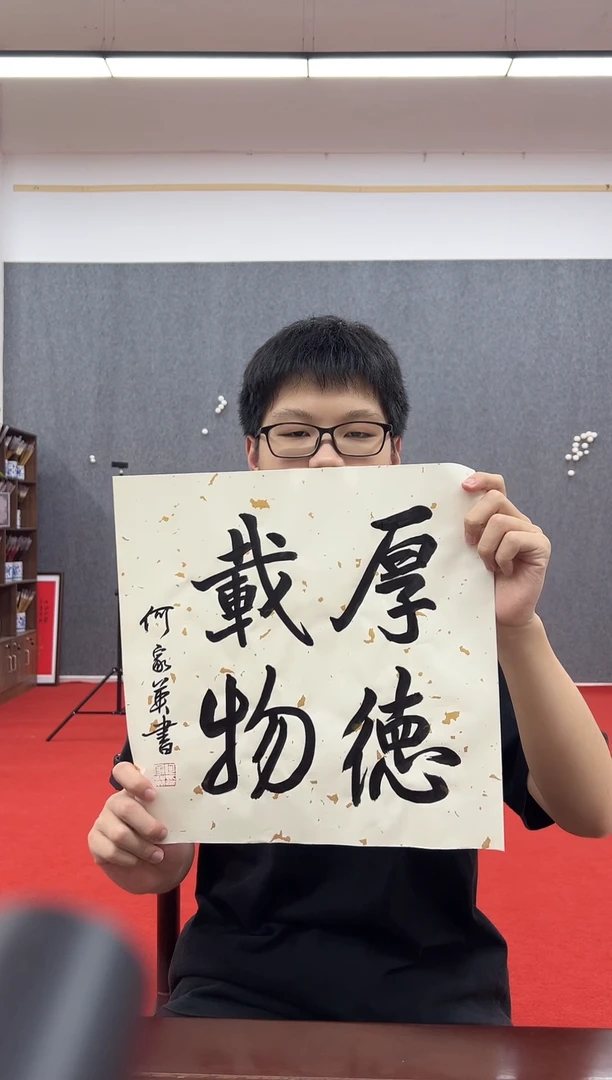 厚德
載物
何家英書